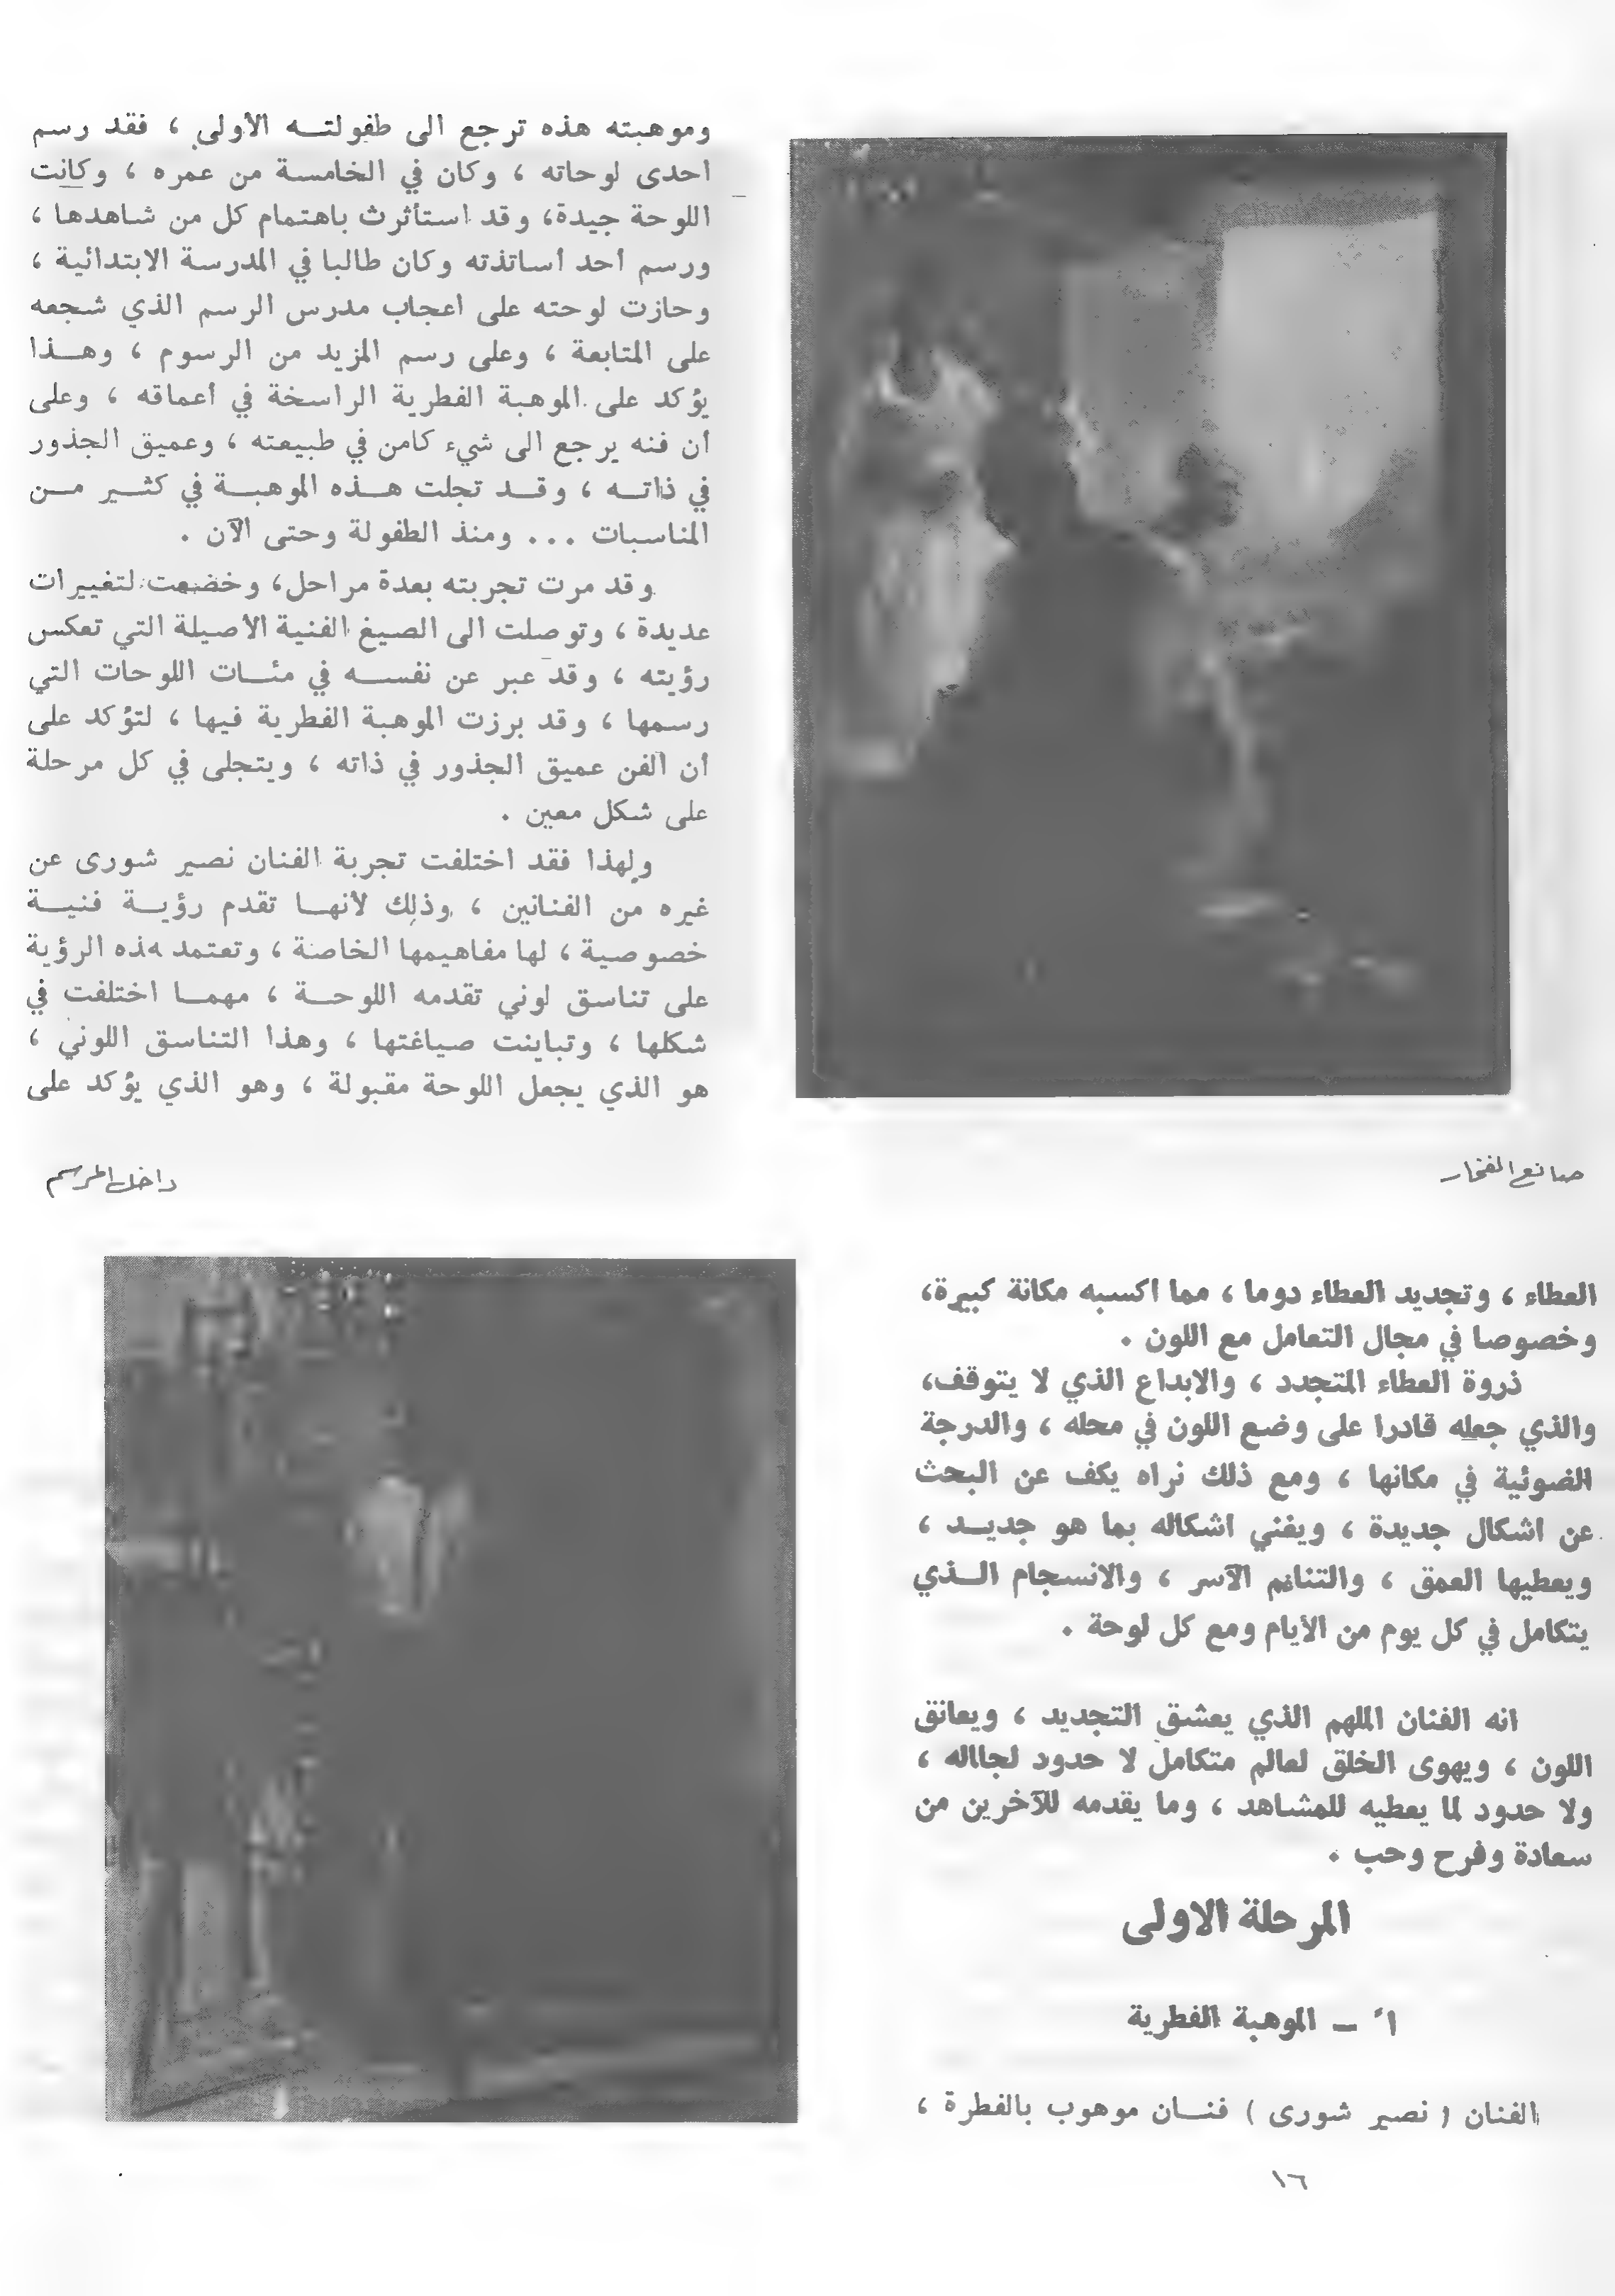 صانع الفخار
العطاء ، وتجديد العطاء دوما ، مما اكسبه مكانة كبيرة،
وخصوصا في مجال التعامل مع اللون .
ذروة العطاء المتجدد ، والابداع الذي لا يتوقف،
والذي جعله قادرا على وضع اللون في محله ، والدرجة
الضوئية في مكانها ، ومع ذلك نراه يكف عن البحث
عن اشكال جديدة ، ويغني اشكاله بما هو جديــد ،
ويعطيها العمق ، والتناغم الآسر ، والانسجام الــذي
يتكامل في كل يوم من الأيام ومع كل لوحة .
انه الفنان الملهم الذي يعشق التجديد ، ويعانق
اللون ، ويهوى الخلق لعالم متكامل لا حدود لجماله ،
ولا حدود لما يعطيه للمشاهد ، وما يقدمه للآخرين من
سعادة وفرح وحب .
المرحلة الاولى
أ – الموهبة الفطرية
الفنان ( نصير شورى ) فنــان موهوب بالفطرة ،
١٦
وموهبته هذه ترجع الى طفولتــه الأولى ، فقد رسم
احدى لوحاته ، وكان في الخامسة من عمره ، وكانت
اللوحة جيدة، وقد استأثرث باهتمام كل من شاهدها ،
ورسم أحد أساتذته وكان طالبا في المدرسة الابتدائية ،
وحازت لوحته على اعجاب مدرس الرسم الذي شجعه
على المتابعة ، وعلى رسم المزيد من الرسوم ، وهــذا
يؤكد على الموهبة الفطرية الراسخة في أعماقه ، وعلى
أن فنه يرجع الى شيء كامن في طبيعته ، وعميق الجذور
في ذاتــه ، وقــد تجلت هــذه الموهبــة في كثــير مــن
المناسبات ... ومنذ الطفولة وحتى الآن .
وقد مرت تجربته بعدة مراحل، وخضعت لتغييرات
عديدة ، وتوصلت الى الصيغ الفنية الأصيلة التي تعكس
رؤيته ، وقد عبر عن نفســه في مئــات اللوحات التي
رسمها ، وقد برزت الموهبة الفطرية فيها ، لتؤكد على
أن الفن عميق الجذور في ذاته ، ويتجلى في كل مرحلة
على شكل معين .
ولهذا فقد اختلفت تجربة الفنان نصير شورى عن
غيره من الفنانين ، وذلك لأنهــا تقدم رؤيــة فنيــة
خصوصية ، لها مفاهيمها الخاصة ، وتعتمد هذه الرؤية
على تناسق لوني تقدمه اللوحــة ، مهمــا اختلفت في
شكلها ، وتباينت صياغتها ، وهذا التناسق اللوني ،
هو الذي يجعل اللوحة مقبولة ، وهو الذي يؤكد على
داخل المرسم